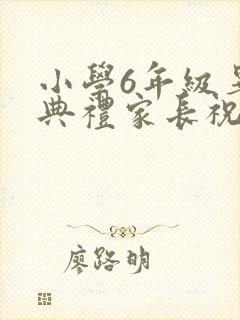 小學6年級
典禮家長祝
廖路明